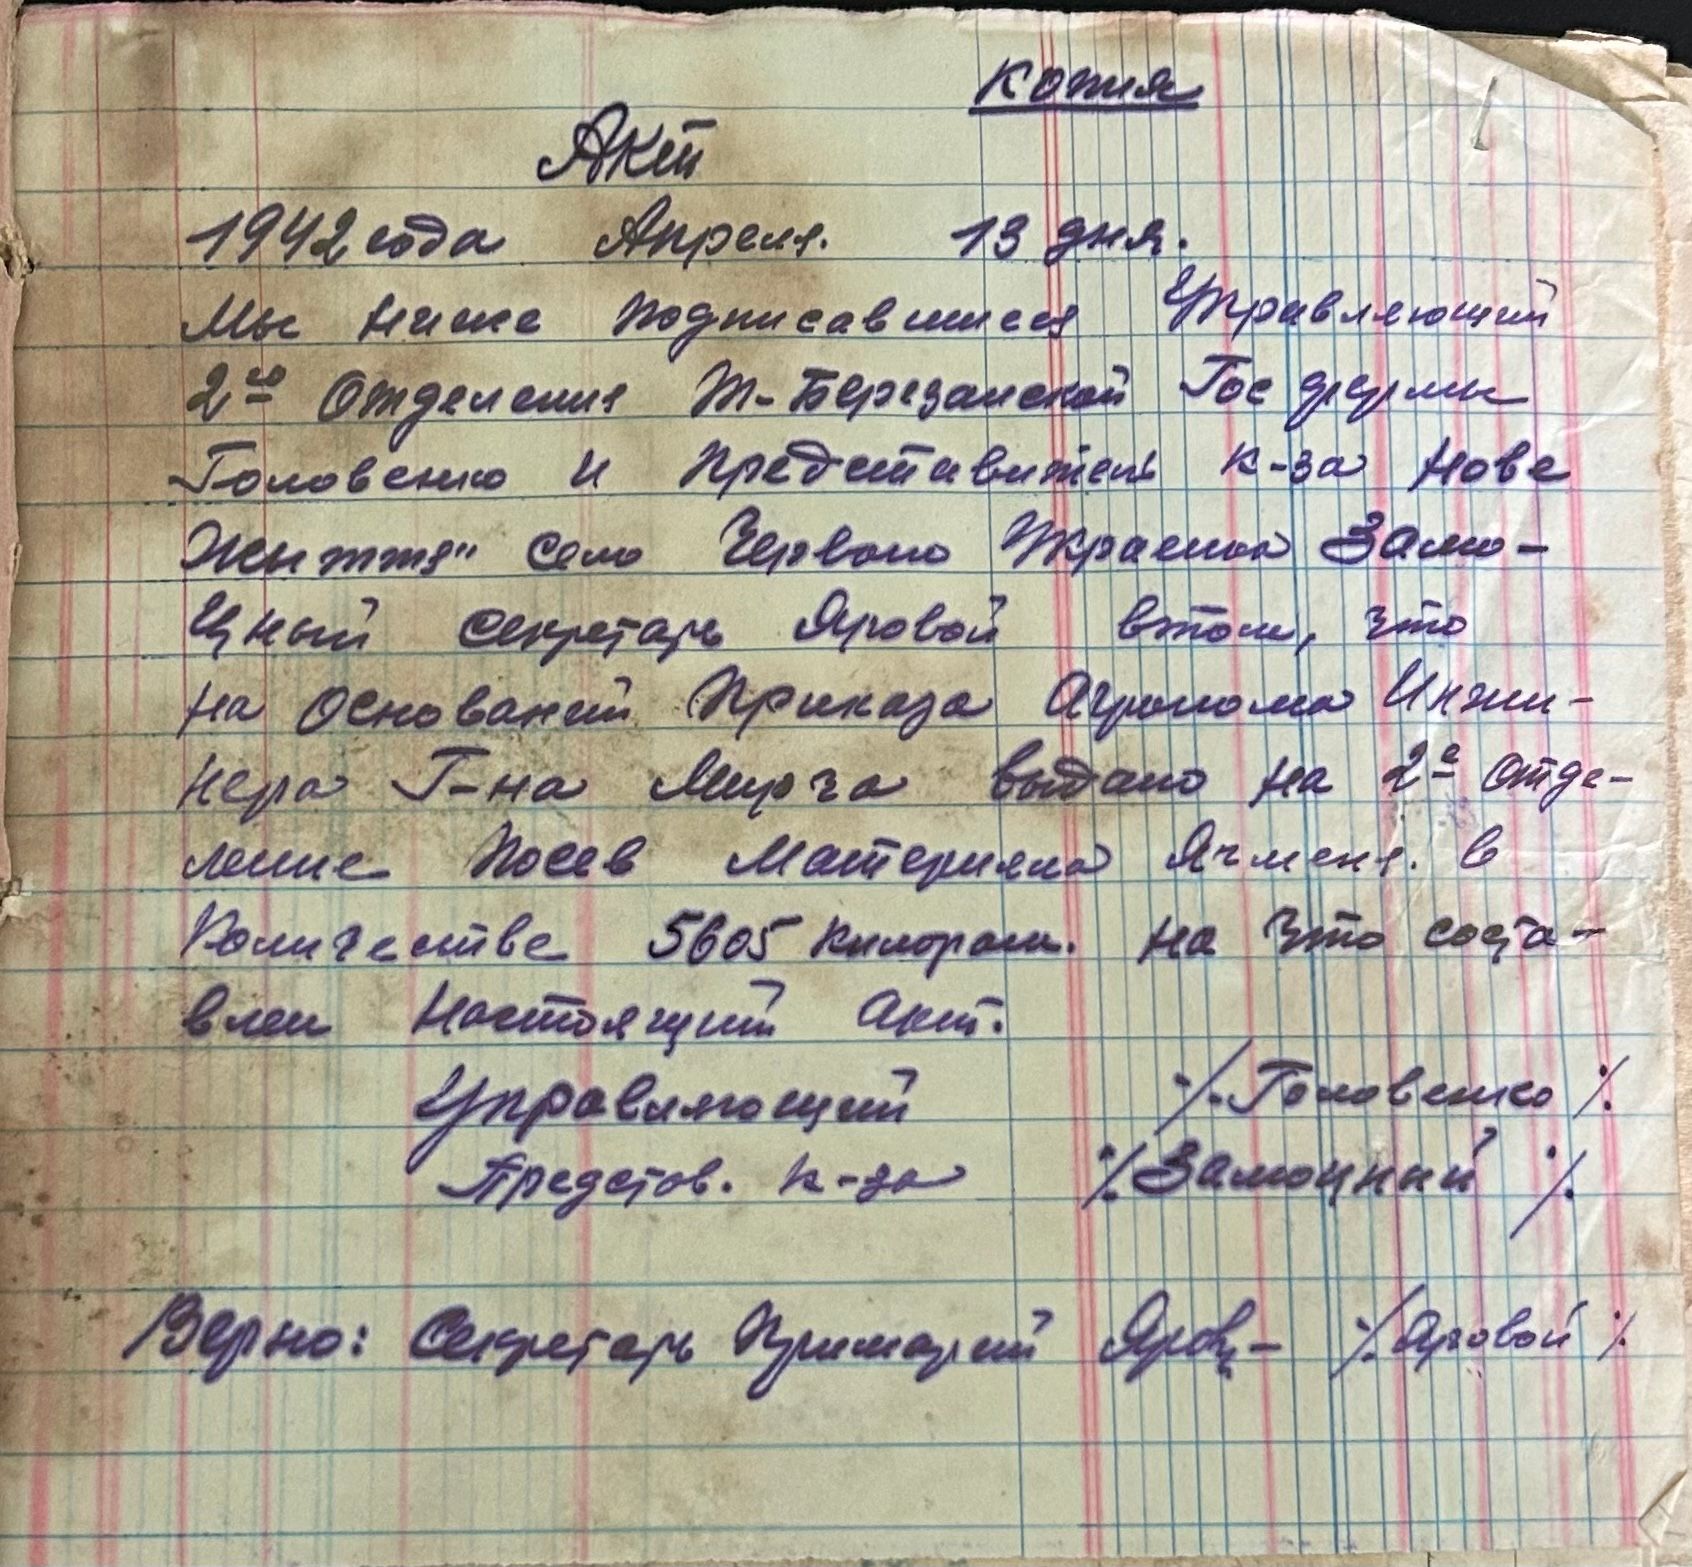 Копия
Акт
1942 года Апреля. 13 дня.
Мы ниже подписавшиеся Управляющий
2го Отделения Т-Березанской Гос фермы
Головенко и Представитель к-за Нове
Життя" село Червоно Украенка Замо-
щный секретарь Яровой втом, что
на Оснований Приказа Агронома Инжи-
нера Г-на Мирча выдано на 2е отде-
ление Посев Материяла Ячменя. в
Количестве 5605 килограм. На что соста-
влен Настоящий акт.
Управляющий /Головенко/
Предстов. к-за /Замоцный/
Верно: Секретарь Примарий /Яровой/